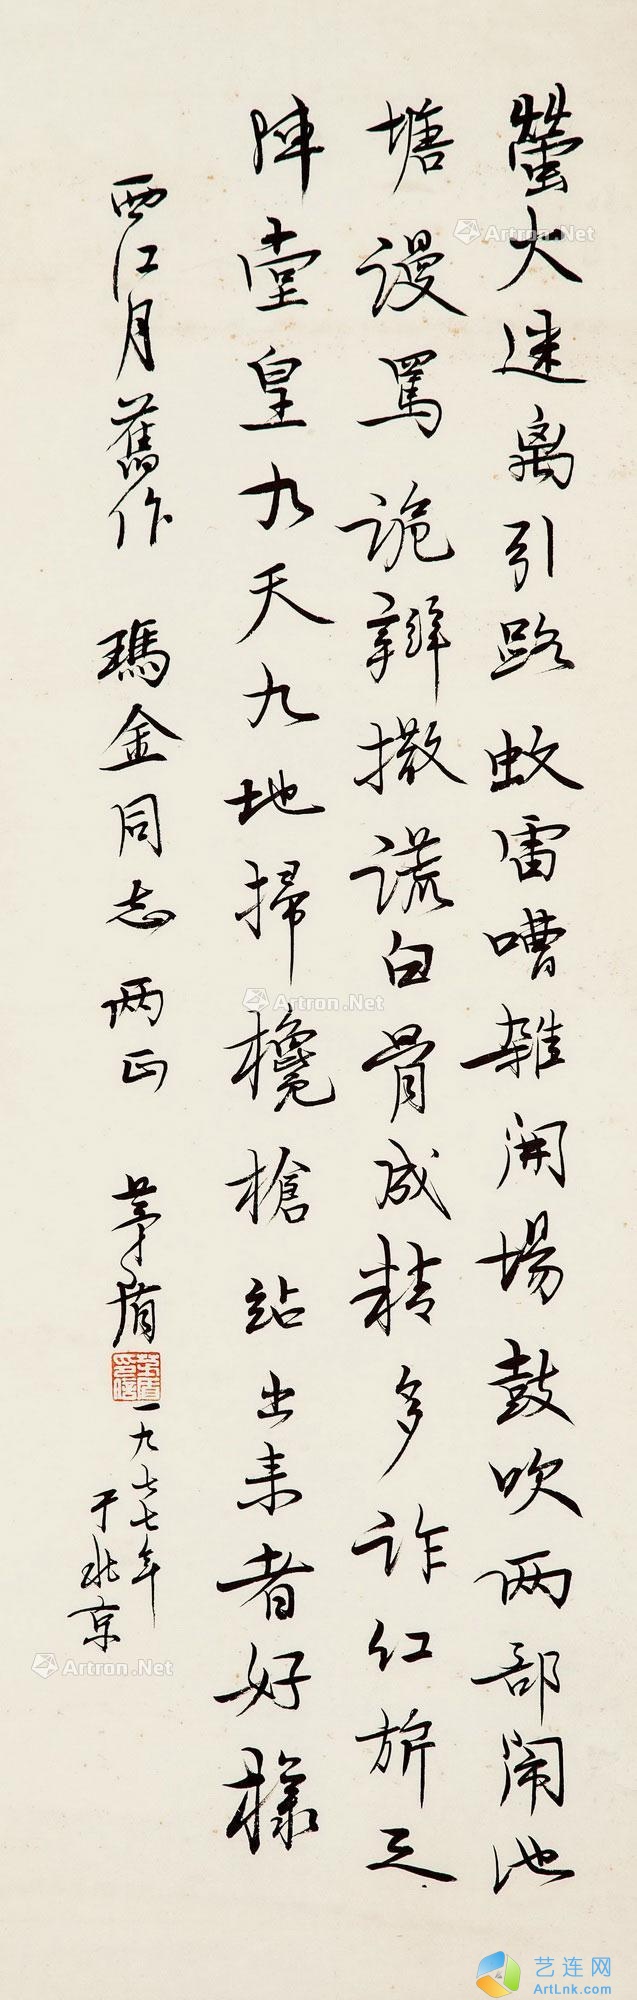 螢火迷离引路蚊雷嘈雜開場鼓吹兩部闹池
塘谩罵诡辯撒谎白骨成精多诈红旂正
陣堂皇九天九地掃欃槍站出来者好樣
西江月舊作 瑪金同志两正 茅盾
茅盾印信
一九七七年
于北京
Artron.Net
Artron.Net
Artron.Net
艺连网
ArtLnk.com